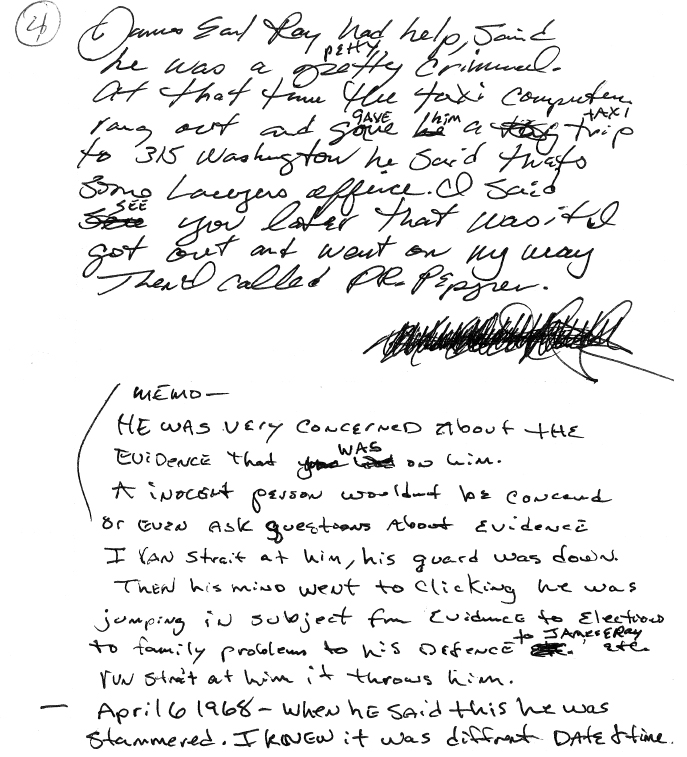 4
James Earl Ray had help, said
PETTY
he was a pretty criminal.
At that time the taxi computer
GAVE him TAXI
rang out and gave he a trip
to 315 Washington he said thats
Some Lawyers offince. I said
SEE
you later that was it I
got out and went on my way
Then I called PR. Pepper.
MEMO —
HE WAS VERY CONCERNED About tHE
WAS
EVIDENCE that on him.
A inocent person wouldnt be concernd
or EVEN ASK questions About Evidence
I RAN Strait at him, his guard was down.
THEN his mind went to Clicking he was
jumping in subject frm Evidence to Elections
to JAMES E Ray
to family problems to his DEFENCE etc.
run strait at him it throws him.
— April 6 1968 - when he said this he was
Stammered. I KNEW it was diffrent DATE & time.